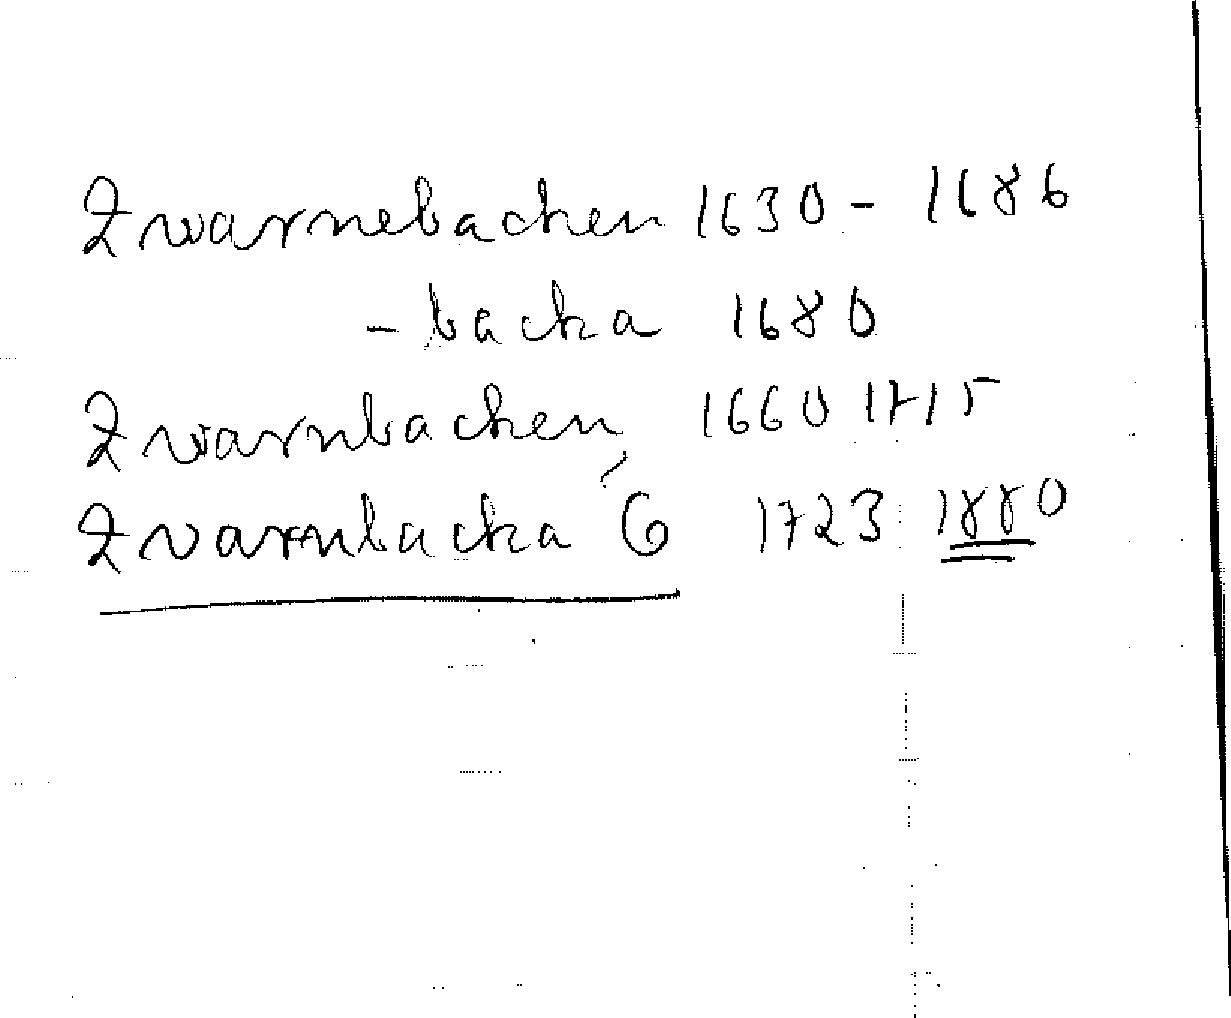 Qwarnebacken 1630 - 1686
- backa 1680
Qwarnbacken, 1660 1715
Qvarnbacka 6 1723 1880